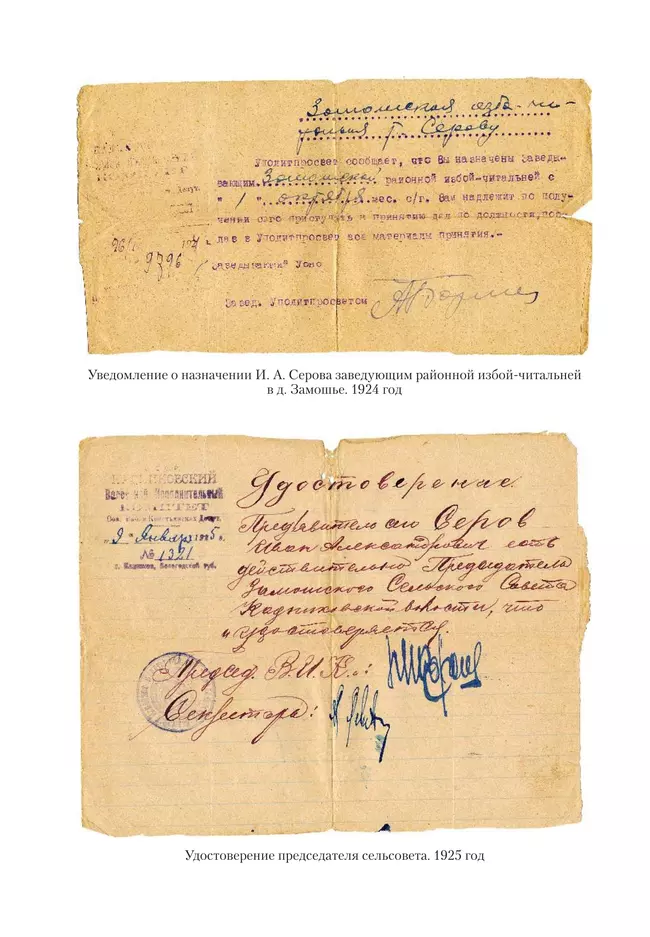 Замошская изба-чи-
тальня т. Серову
Уполитпросвет сообщает, что Вы назначены Заведы-
вающим Замошской районной избой-читальней с
" 1 " октября мес. с/г. Вам надлежит по полу-
чении сего приступить к принятию дел по должности, пос-
лав в Уполитпросвет все материалы принятия.-
9796
Заведывающий Уоно
Завед. Уполитпросветом
Уведомление о назначении И. А. Серова заведующим районной избой-читальней
в д. Замошье. 1924 год
КАДНИКОВСКИЙ
Волостной Исполнительный
КОМИТЕТ
Сов. Раб. и Крестьянских Депут.
"9" Января 1925 г.
№ 1321
г. Кадников, Вологодской губ.
Удостоверение
Предъявитель сего Серов
Иван Александрович есть
действительно Председатель
Замошского Сельского Совета
Кадниковской волости, что
и удостоверяется.
Председ. В.И.К.:
Секретарь:
Удостоверение председателя сельсовета. 1925 год